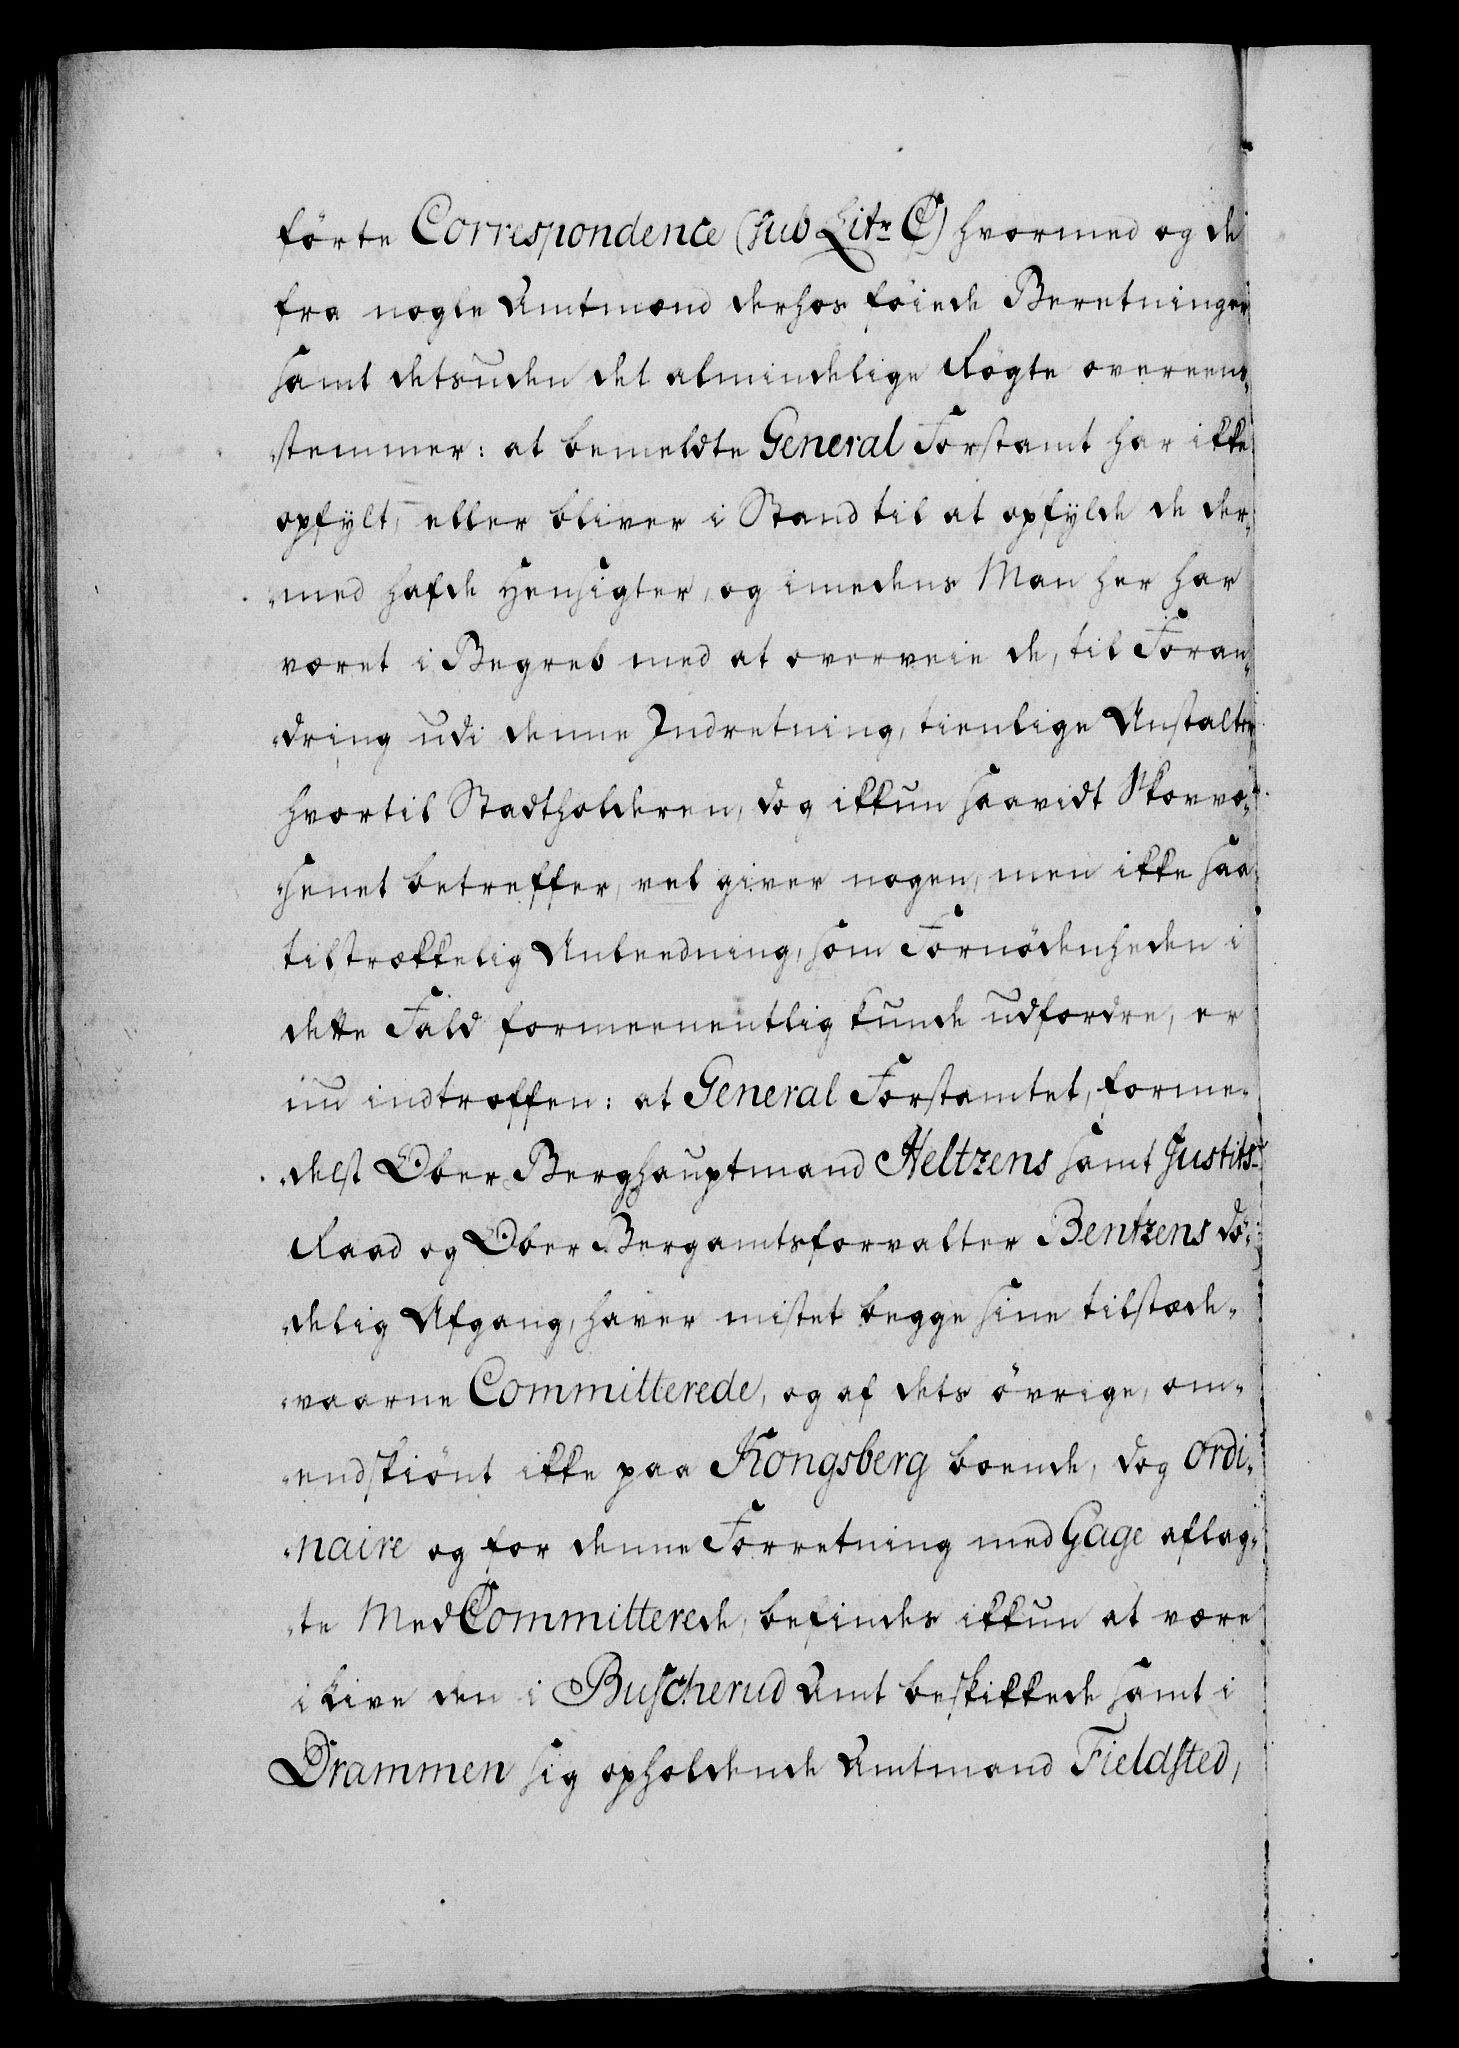 förte Correspondence (sub Litr C) hvormed og de
fra nogle Amtmænd derhos föiede Beretninger
samt desuden det almindelige Rögte overeens-
stemmer: at bemeldte General Forstamt har ikke
opfylt, eller bliver i Stand til at opfylde de der-
med hafde Hensigter, og imedens Man her har
været i Begreb med at overveie de, til Foran-
dring udi denne Indretning, tienlige Anstalter
hvortil Stadtholderen, dog ikkun saavidt Skovvæ-
senet betreffer, vel giver nogen, men ikke saa
tilstrækkelig Anleedning, som Fornödenheden i
dette Fald formeenentlig kunde udfordre, er
nu indtroffen: at General Forstamtet, forme-
delst Ober Berghauptmand Heltzens samt Justits-
Raad og Ober Bergamtsforvalter Bentzens dö-
delig Afgang, haver mistet begge sine tilstæde-
værne Committerede, og af dets övrige, om-
endskiönt ikke paa Kongsberg boende, dog ordi-
naire og for denne Forretning med Gage aflag-
te MedCommitterede, befindes ikkun at være
i Live den i Buscherud Amt beskikkede samt i
Drammen sig opholdende Amtmand Fieldsted,